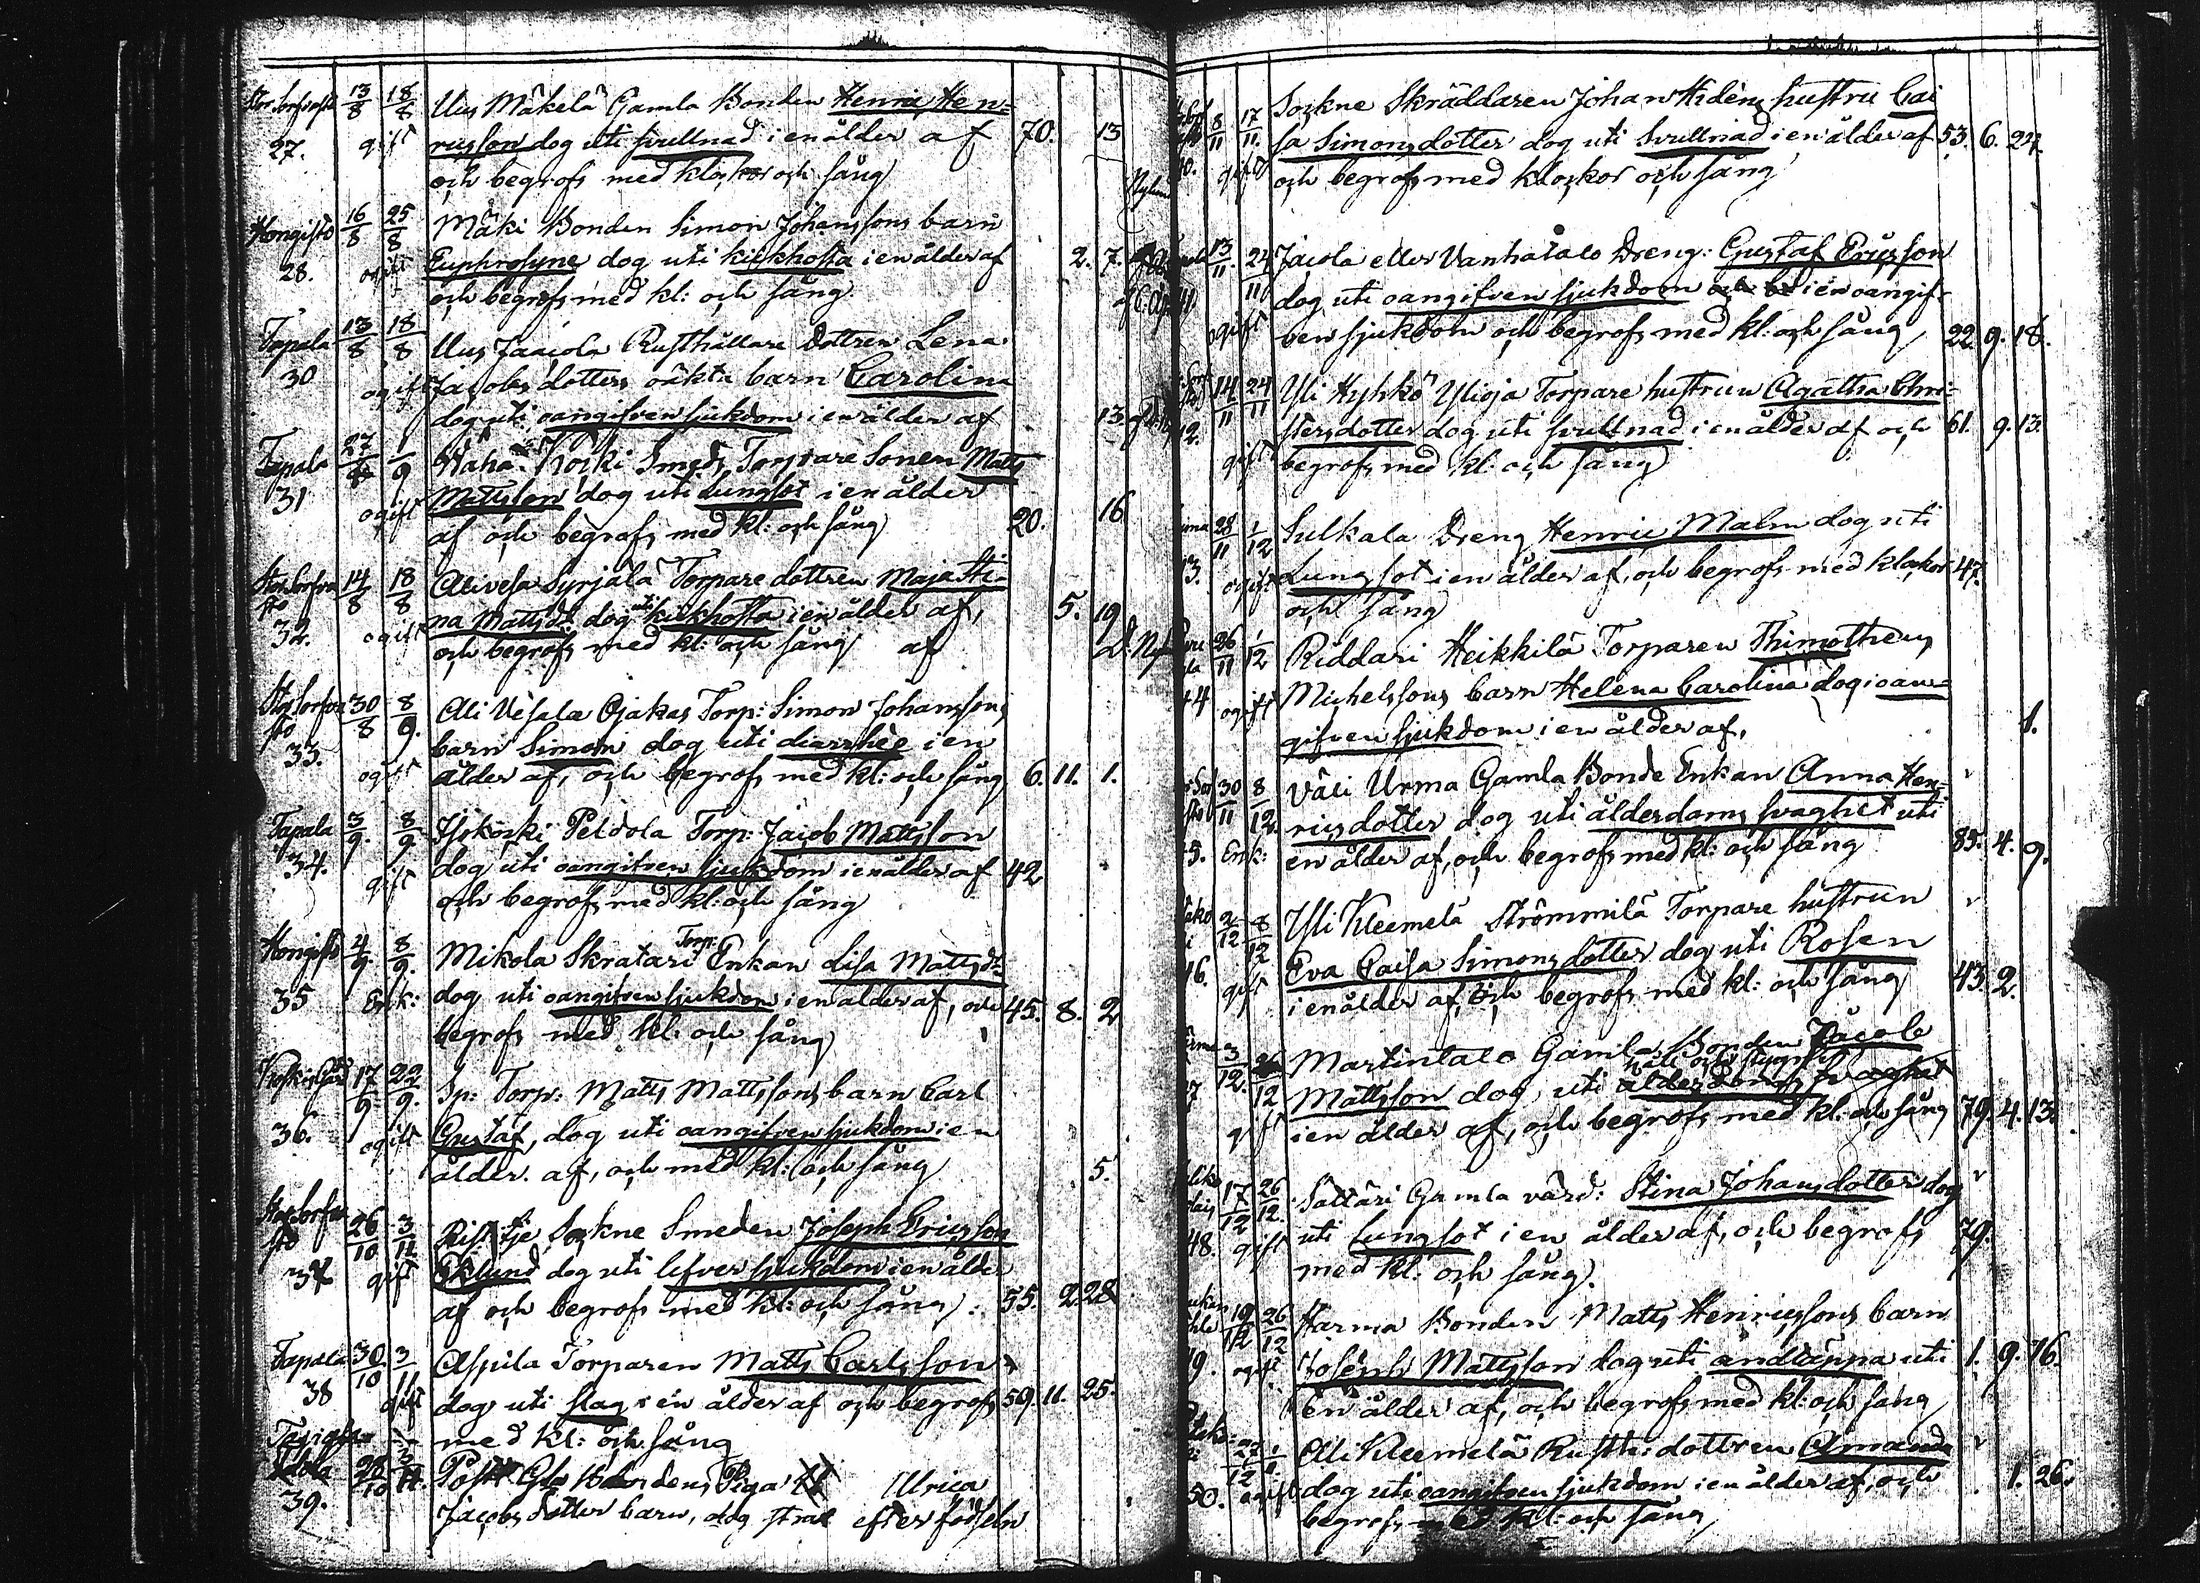 13/8 18/8 Uus Mäkelä Gamla Bonden Henric Hen=
27. gift ricsson dog uti svullnad i en ålder af 70. 13
och begrofs med klockor och sång
Hongisto 16/8 25/8 Mäki Bonden Simon Johanssons barn
28. ogift Euphrosyne dog uti kickhosta i en ålder af 2. 7.
och begrofs med kl: och sång.
Tapala 13/8 18/8 Uus Jaacola Rusthållare dottren Lena
30 ogift Jacobs dotters oäkta barn Carolina
dog uti oangifven sjukdom i en ålder af 13.
Tapala 27/8 1/9 Waha Koski Smeds Torpare Sonen Matts
31 ogift Mattsson dog uti Lungsot i en ålder
af och begrofs med kl: och sång 20. 16
14/8 18/8 Alivesa Syrjälä Torpare dottren Maja Sti=
32. ogift na Mattsdr dog uti kickhosta i en ålder af, 5. 19
och begrofs med kl: och sång af
30/8 8/9. Ali Vesala Ojakas Torp: Simon Johanssons
33. barn Simon dog uti diarrhée i en
ogift ålder af, och begrofs med kl: och sång 6. 11. 1.
Tapala 3/9. 8/9 Isokoski Peldola Torp: Jacob Mattsson
34. gift dog uti oangifven sjukdom i en ålder af 42
och begrofs med kl: och sång
Hongisto 4/9. 8/9. Mikola Skratari Torp: Enkan Lisa Mattsdr
35 Enk: dog uti oangifven sjukdom i en ålder af, och 45. 8. 2
begrofs med kl: och sång
17/9 22/9. Sp: Torp: Matts Mattssons barn Carl
36. ogift Gustaf, dog uti oangifven sjukdom i en
ålder af, och med kl: och sång 5.
26/10 3/11 Ristitje Sockne Smeden Joseph Ericsson
37 gift Eklund dog uti lefver sjukdom i en ålder
af och begrofs med kl: och sång. 55. 2. 28
Tapala 30/10 3/11 Aspila Torparen Matts Carlsson
38 gift dog uti slag i en ålder af och begrofs 59. 11. 25.
med kl: och sång
28/10 Piga Ulrica
39. Jacobs dotter barn, dog strax efter födseln
8/11 17/11. Sockne Skräddaren Johan Hidéns hustru Cai
gift sa Simons dotter dog uti Svullnad i en ålder af 53. 6. 24.
och begrofs med klockor och sång
13/11. 24/11 Jacola eller Vanhatalo Dreng: Gustaf Ericsson
dog uti oangifven sjukdom i en oangif-
ogift ven sjukdom och begrofs med kl: och sång 22. 9. 18.
14/11 24/11 Yli Hyhkö Ylioja Torpare hustrun Agatha Chri-
gift stersdotter dog uti svullnad i en ålder af och 61. 9. 13.
begrofs med kl: och sång
28/11 1/12 Sulkala Dreng Henric Malm dog uti
3. ogift Lungsot i en ålder af, och begrofs med klockor 47.
och sång
26/11 1/12 Riddari Heikkilä Torparen Thimotheus
44 ogift Michelssons barn Helena Carolina dog i oan-
gifven sjukdom i en ålder af, 1.
30/11 8/12. Väli Urma Gamla Bonde Enkan Anna Hen-
5. Enk: rics dotter dog uti ålderdoms svaghet uti
en ålder af, och begrofs med kl: och sång 85. 4. 9.
2/12 8/12 Yli Kleemelä Strömmilä Torpare hustrun
46. gift Eva Caisa Simons dotter dog uti Rosen
i en ålder af, och begrofs med kl: och sång 43. 2.
3/12. 26/12 Martintalo Gamla Bonden Jacob
Mattsson dog, uti ålderdoms svaghet
gift i en ålder af, och begrofs med kl. och sång 79. 4. 13.
17/12 26/12. Sattäri Gamla värd: Stina Johansdotter dog
48. gift uti lungsot i en ålder af, och begrofs 79.
med kl: och sång.
19/12 26/12 Harma Bonden Matts Henricssons barn
49. ogift Joseph Mattsson dog uti andtäppa uti 1. 9. 16.
en ålder af, och begrofs med kl: och sång
27/12 1/1 Ali Kleemelä Rusth: dottren Amanda
50. ogift dog uti oangifven sjukdom i en ålder af, och 1. 26.
begrofs med kl: och sång